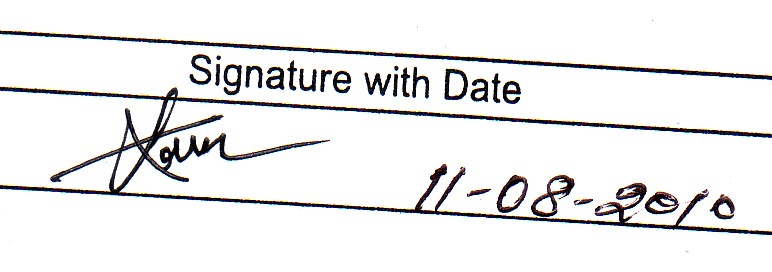 Signature with Date
11-08-2010